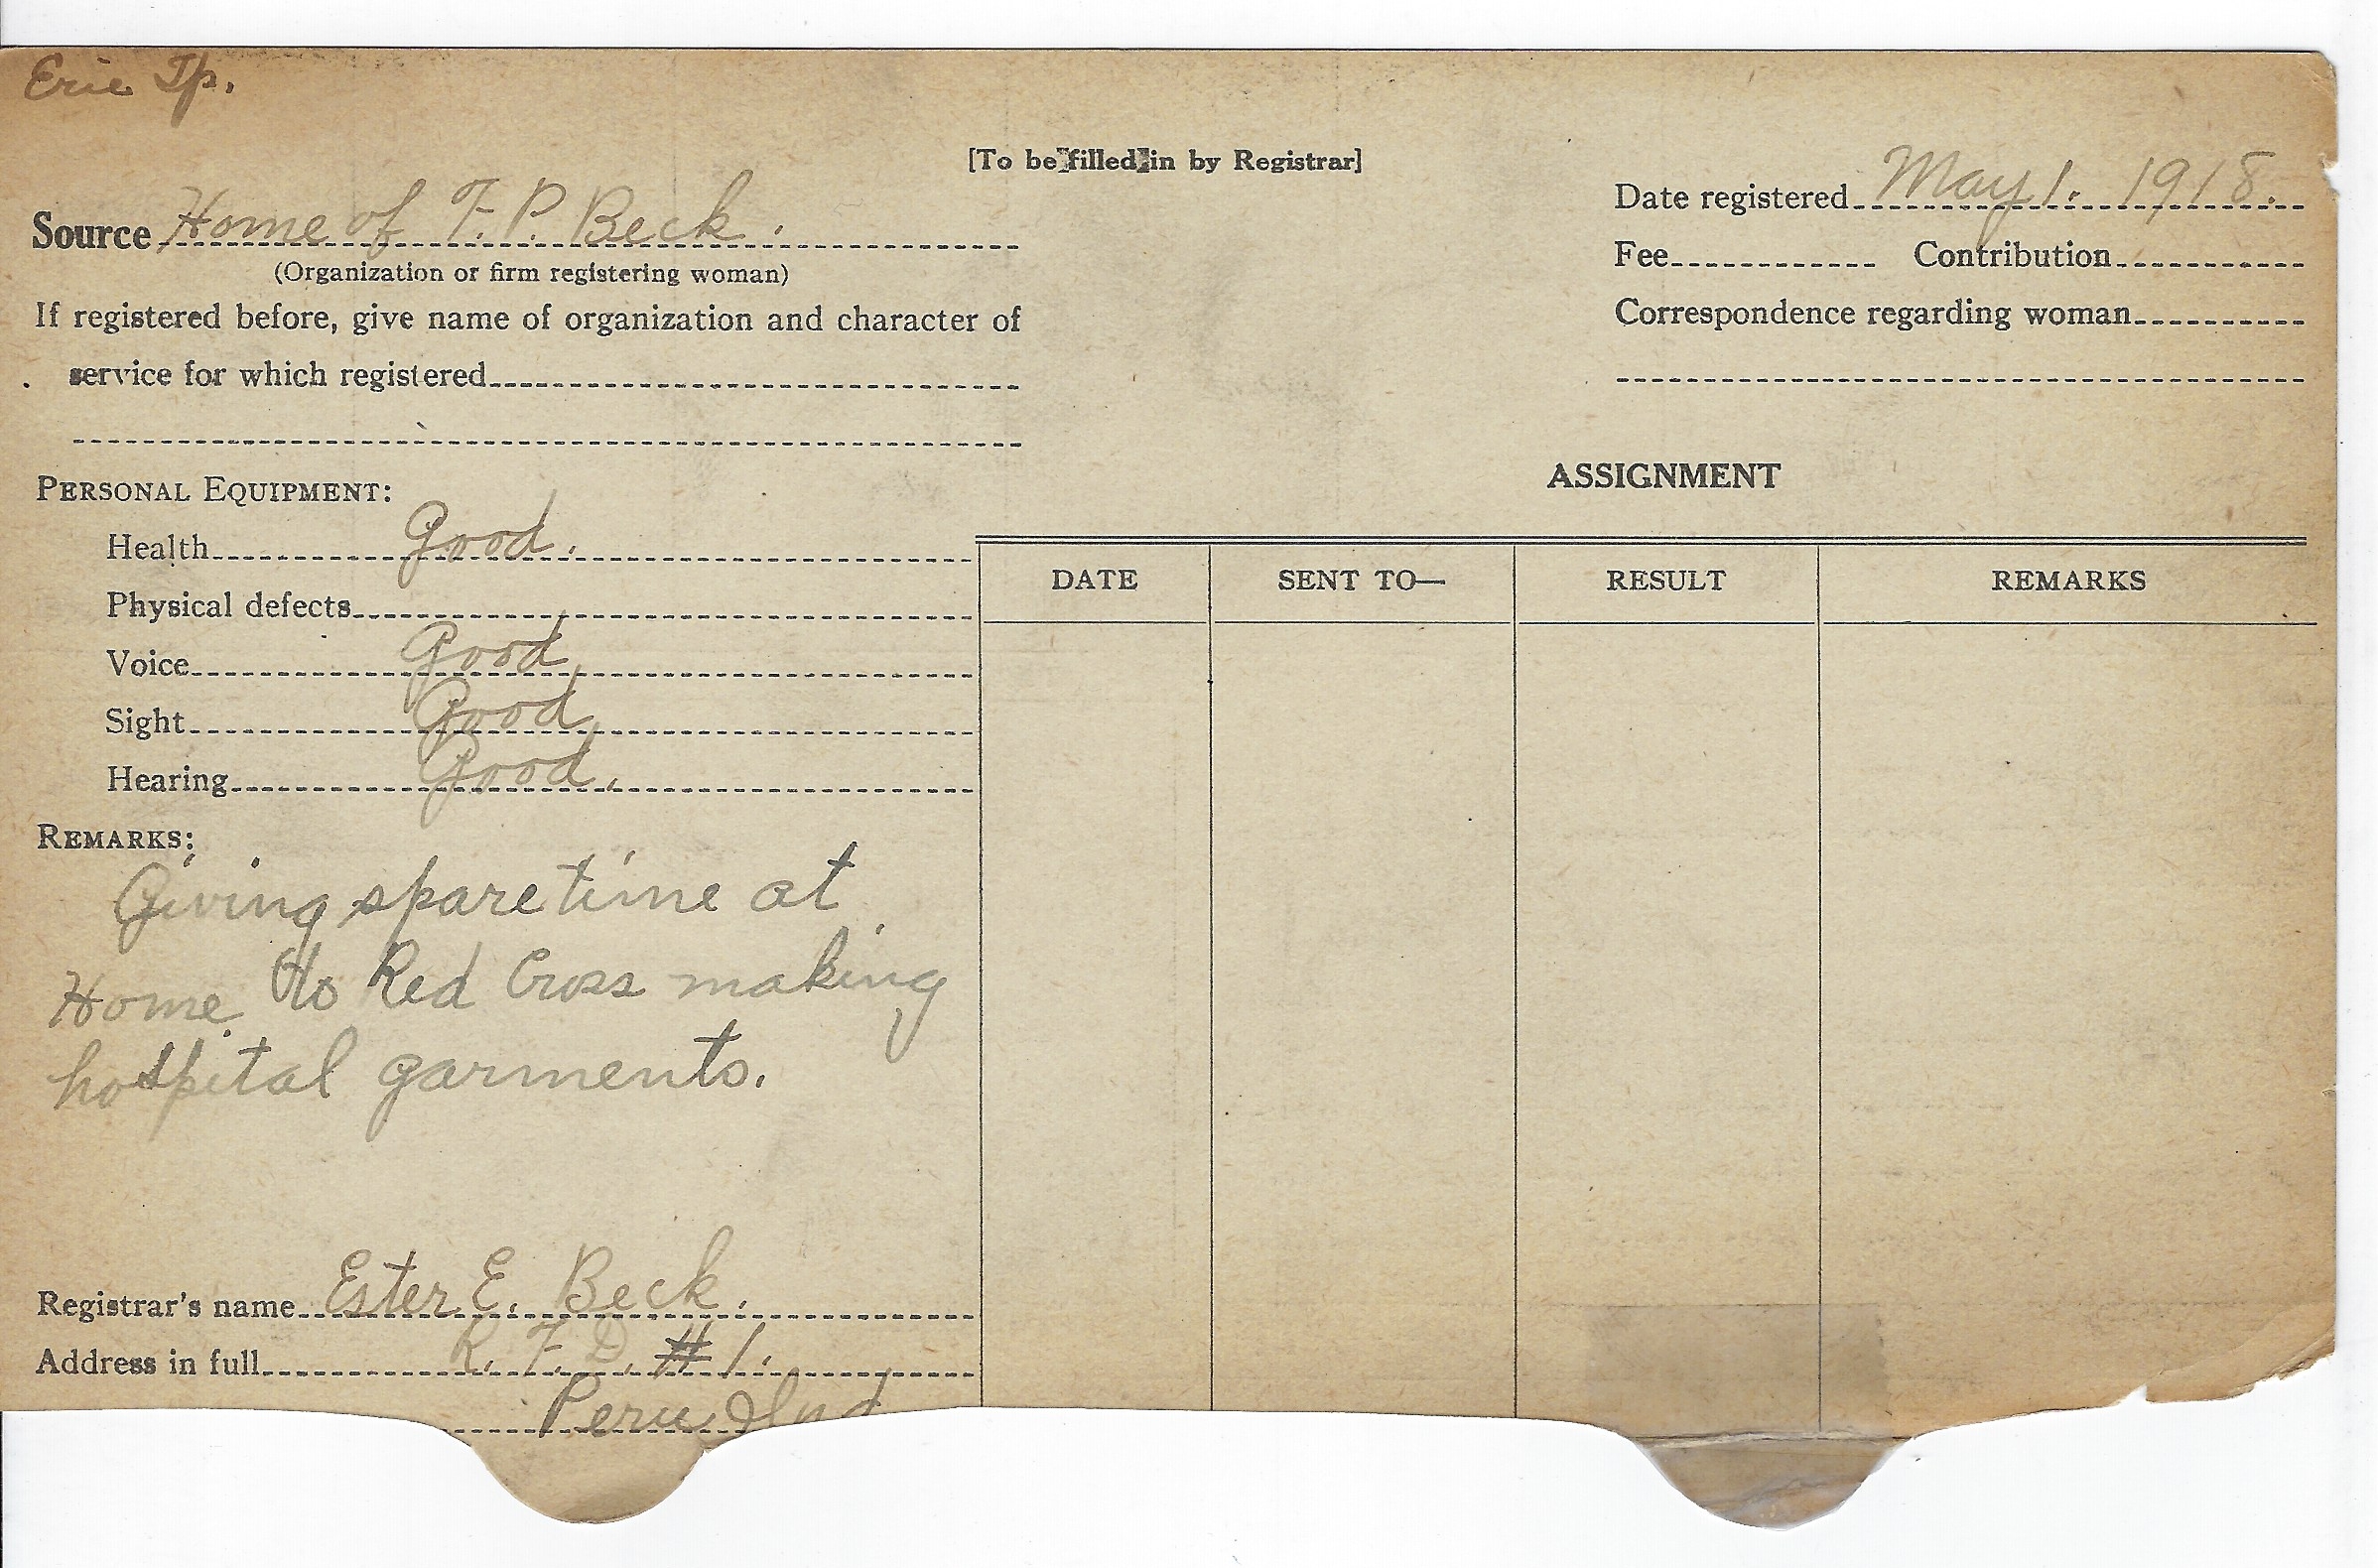 Erie Tp.
[To be filled in by Registrar]
Source Home of F. P. Beck.
(Organization or firm registering woman)
If registered before, give name of organization and character of
service for which registered
Date registered May 1. 1918.
Fee Contribution
Correspondence regarding woman
PERSONAL EQUIPMENT:
Health Good.
Physical defects
Voice Good
Sight Good
Hearing Good.
REMARKS:
Giving spare time at
Home to Red Cross making
hospital garments.
Registrar's name Ester E. Beck.
Address in full R. F. D. #1.
Peru Ind
ASSIGNMENT
DATE SENT TO— RESULT REMARKS